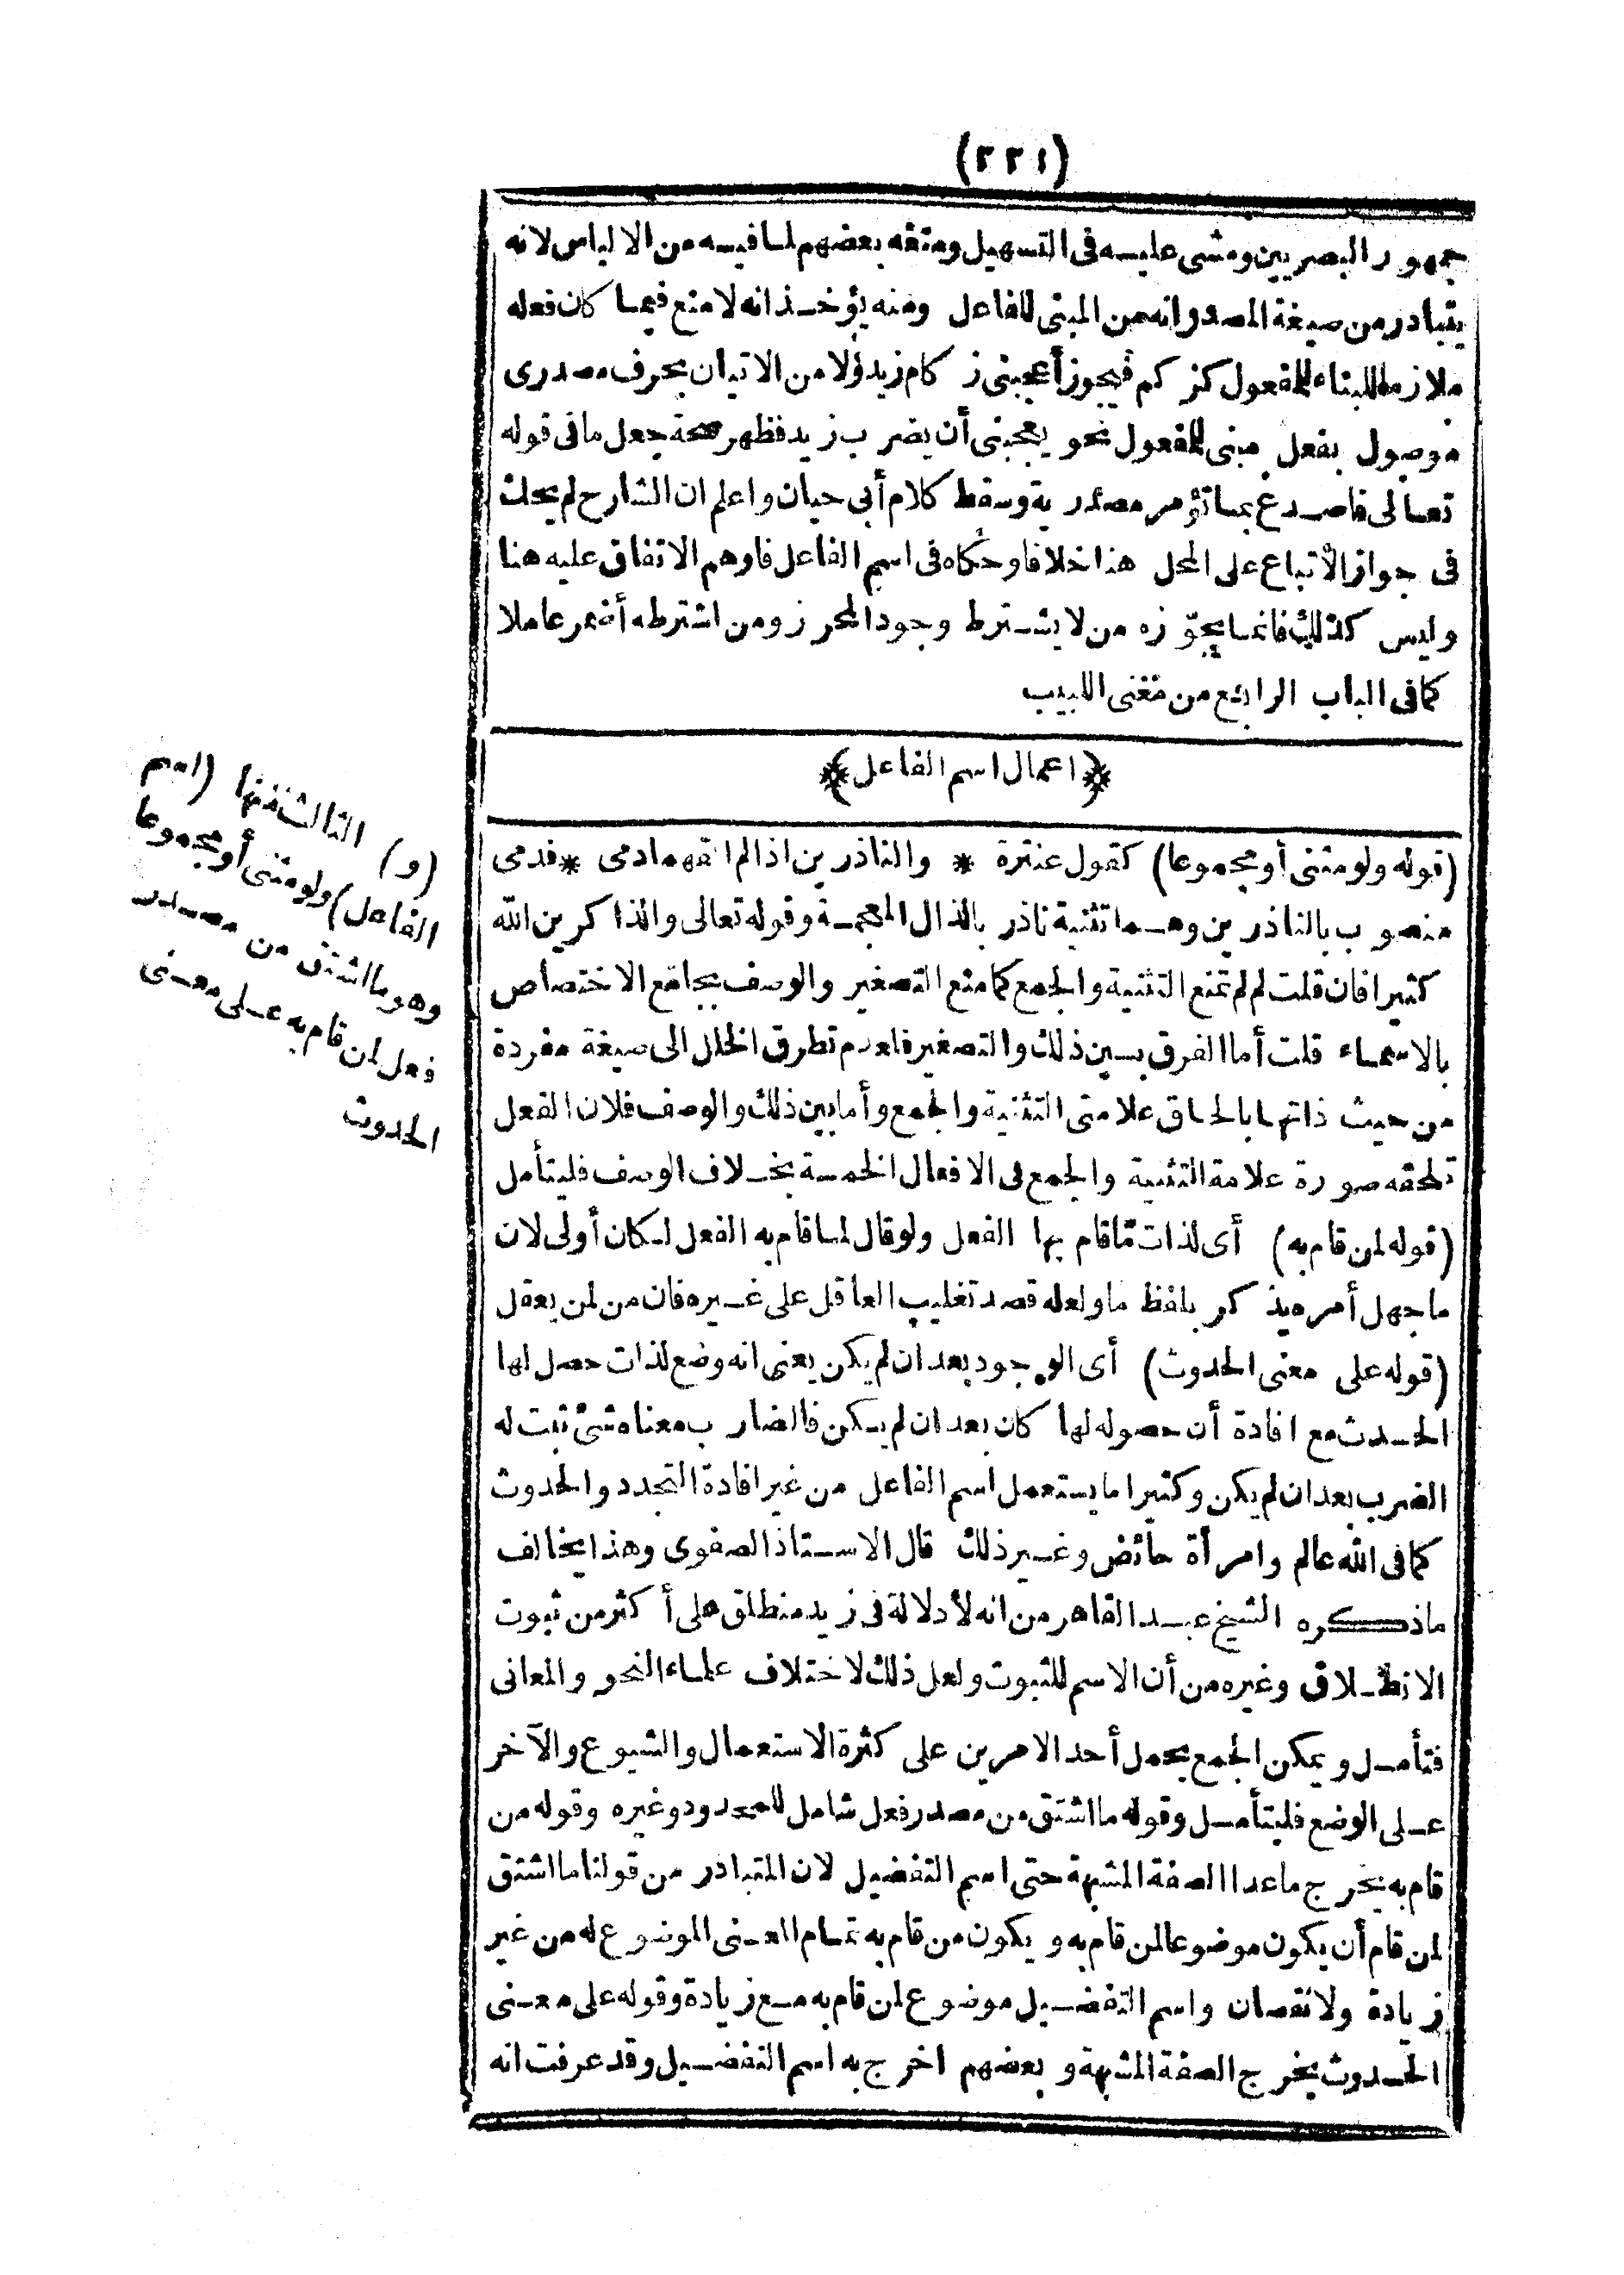 (٢٢١)
جمهور البصريين ومشى عليه فى التسهيل ومنعه بعضهم لما فيه من الالباس لانه
يتبادر من صيغة المصدر انه من المبنى للفاعل ومنه يؤخذ انه لا منع فيما كان فعله
ملازما للبناء للمفعول كزكم فيجوز أعجبنى زكام زيد ولا من الاتيان بحرف مصدرى
موصول بفعل مبنى للمفعول نحو يعجبنى أن يضرب زيد فظهر صحة جعل ما فى قوله
تعالى فاصدع بما تؤمر مصدرية وسقط كلام أبى حيان واعلم ان الشارح لم يحك
فى جواز الاتباع على المحل هذا خلافا وحكاه فى اسم الفاعل فاوهم الاتفاق عليه هنا
وليس كذلك فانما يجوّزه من لا يشترط وجود المحرز ومن اشترطه أضمر عاملا
كما فى الباب الرابع من مغنى اللبيب
﴿اعمال اسم الفاعل﴾
(قوله ولو مثنى أو مجموعا) كقول عنترة * والناذرين اذا لم القهما دمى * فدمى
منصوب بالناذرين وهما تثنية ناذر بالذال المعجمة وقوله تعالى والذاكرين الله
كثيرا فان قلت لم لم تمنع التثنية والجمع كما منع التصغير والوصف بجامع الاختصاص
بالاسماء قلت أما الفرق بين ذلك والتصغير فلعدم تطرق الخلل الى صيغة مفردة
من حيث ذاتها بالحاق علامتى التثنية والجمع وأما بين ذلك والوصف فلان الفعل
تلحقه صورة علامة التثنية والجمع فى الافعال الخمسة بخلاف الوصف فليتأمل
(قوله لمن قام به) أى لذات مّا قام بها الفعل ولو قال لما قام به الفعل لكان أولى لان
ما جهل أمره يذكر بلفظ ما ولعله قصد تغليب العاقل على غيره فان من لمن يعقل
(قوله على معنى الحدوث) أى الوجود بعد ان لم يكن يعنى انه وضع لذات حصل لها
الحدث مع افادة أن حصوله لها كان بعد ان لم يكن فالضارب معناه شئ ثبت له
الضرب بعد ان لم يكن وكثيرا ما يستعمل اسم الفاعل من غير افادة التجدد والحدوث
كما فى الله عالم وامرأة حائض وغير ذلك قال الاستاذ الصفوى وهذا يخالف
ما ذكره الشيخ عبد القاهر من انه لا دلالة فى زيد منطلق على أكثر من ثبوت
الانطلاق وغيره من أن الاسم للثبوت ولعل ذلك لاختلاف علماء النحو والمعانى
فتأمل ويمكن الجمع بحمل أحد الامرين على كثرة الاستعمال والشيوع والآخر
على الوضع فليتأمل وقوله ما اشتق من مصدر فعل شامل للمحدود وغيره وقوله من
قام به يخرج ما عدا الصفة المشبهة حتى اسم التفضيل لان المتبادر من قولنا ما اشتق
لمن قام أن يكون موضوعا لمن قام به ويكون من قام به تمام المعنى الموضوع له من غير
زيادة ولا نقصان واسم التفضيل موضوع لمن قام به مع زيادة وقوله على معنى
الحدوث يخرج الصفة المشبهة وبعضهم اخرج به اسم التفضيل وقد عرفت انه
(و) الثالث منها (اسم
الفاعل) ولو مثنى أو مجموعا
وهو ما اشتق من مصدر
فعل لمن قام به على معنى
الحدوث